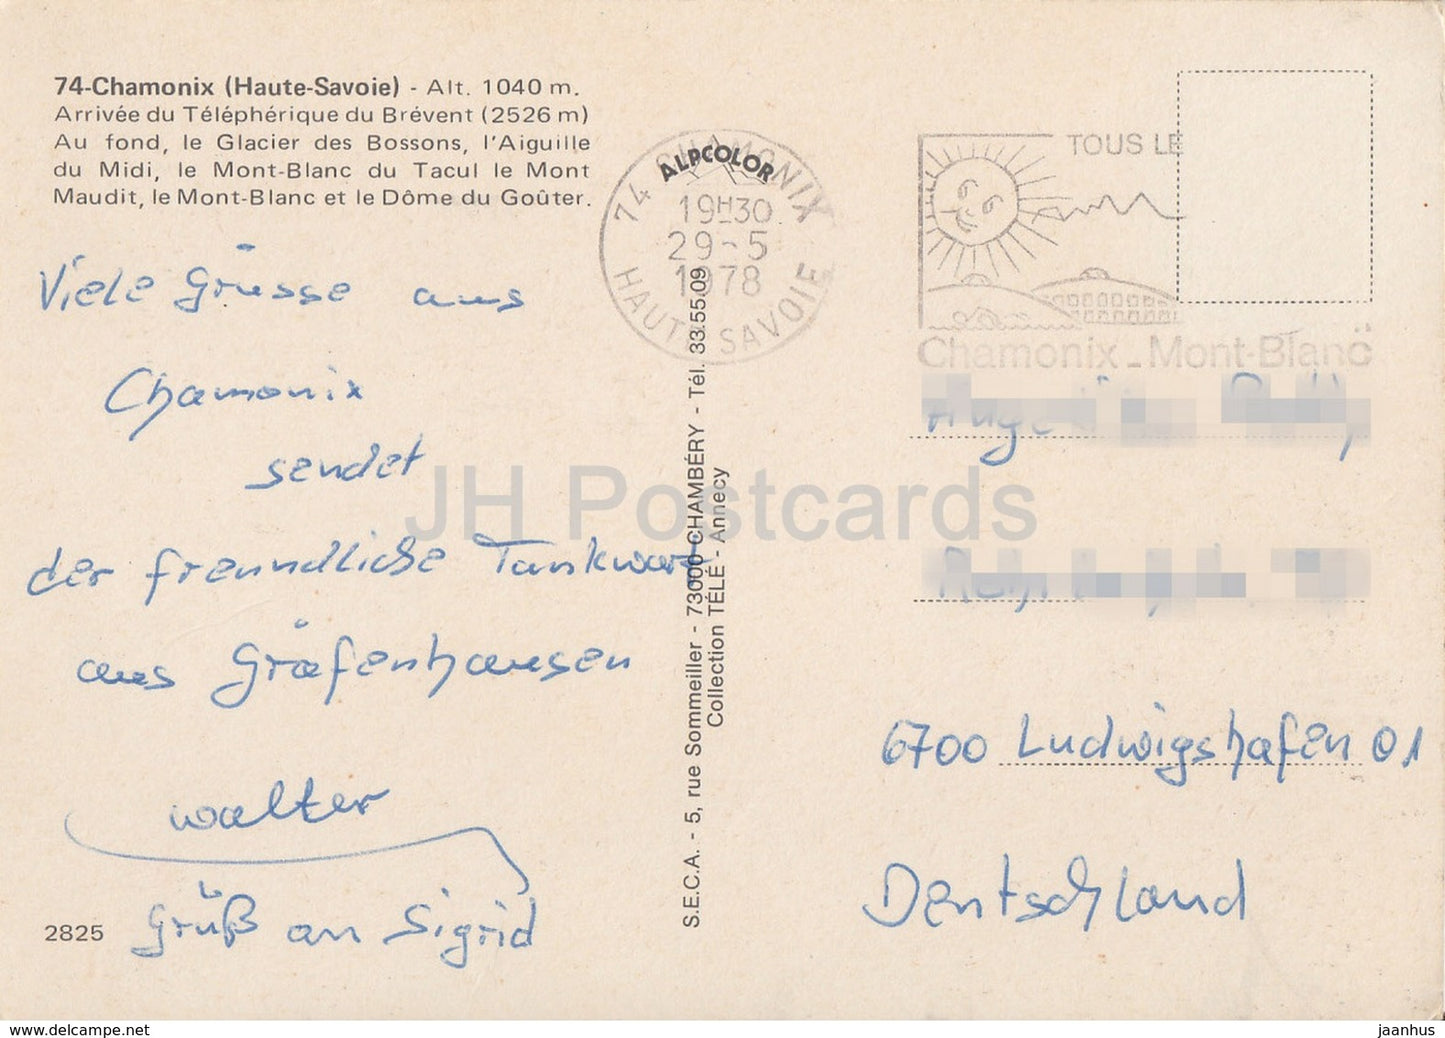 74-Chamonix (Haute-Savoie) - Alt. 1040 m.
Arrivée du Téléphérique du Brévent (2526 m)
Au fond, le Glacier des Bossons, l'Aiguille
du Midi, le Mont-Blanc du Tacul le Mont
Maudit, le Mont-Blanc et le Dôme du Goûter.
Viele Grüsse aus
Chamonix
sendet
der freundliche Tankwart
aus Gräfenhausen
Walter
Grüß an Sigrid
2825
ALPCOLOR
74 CHAMONIX
19H30
29-5
1978
HAUTE SAVOIE
S.E.C.A. - 5, rue Sommeiller - 73000 CHAMBÉRY - Tél. 33.55.09
Collection TÉLÉ - Annecy
TOUS LE
Chamonix-Mont-Blanc
6700 Ludwigshafen 01
Deutschland
JH Postcards
www.delcampe.net
jaanhus